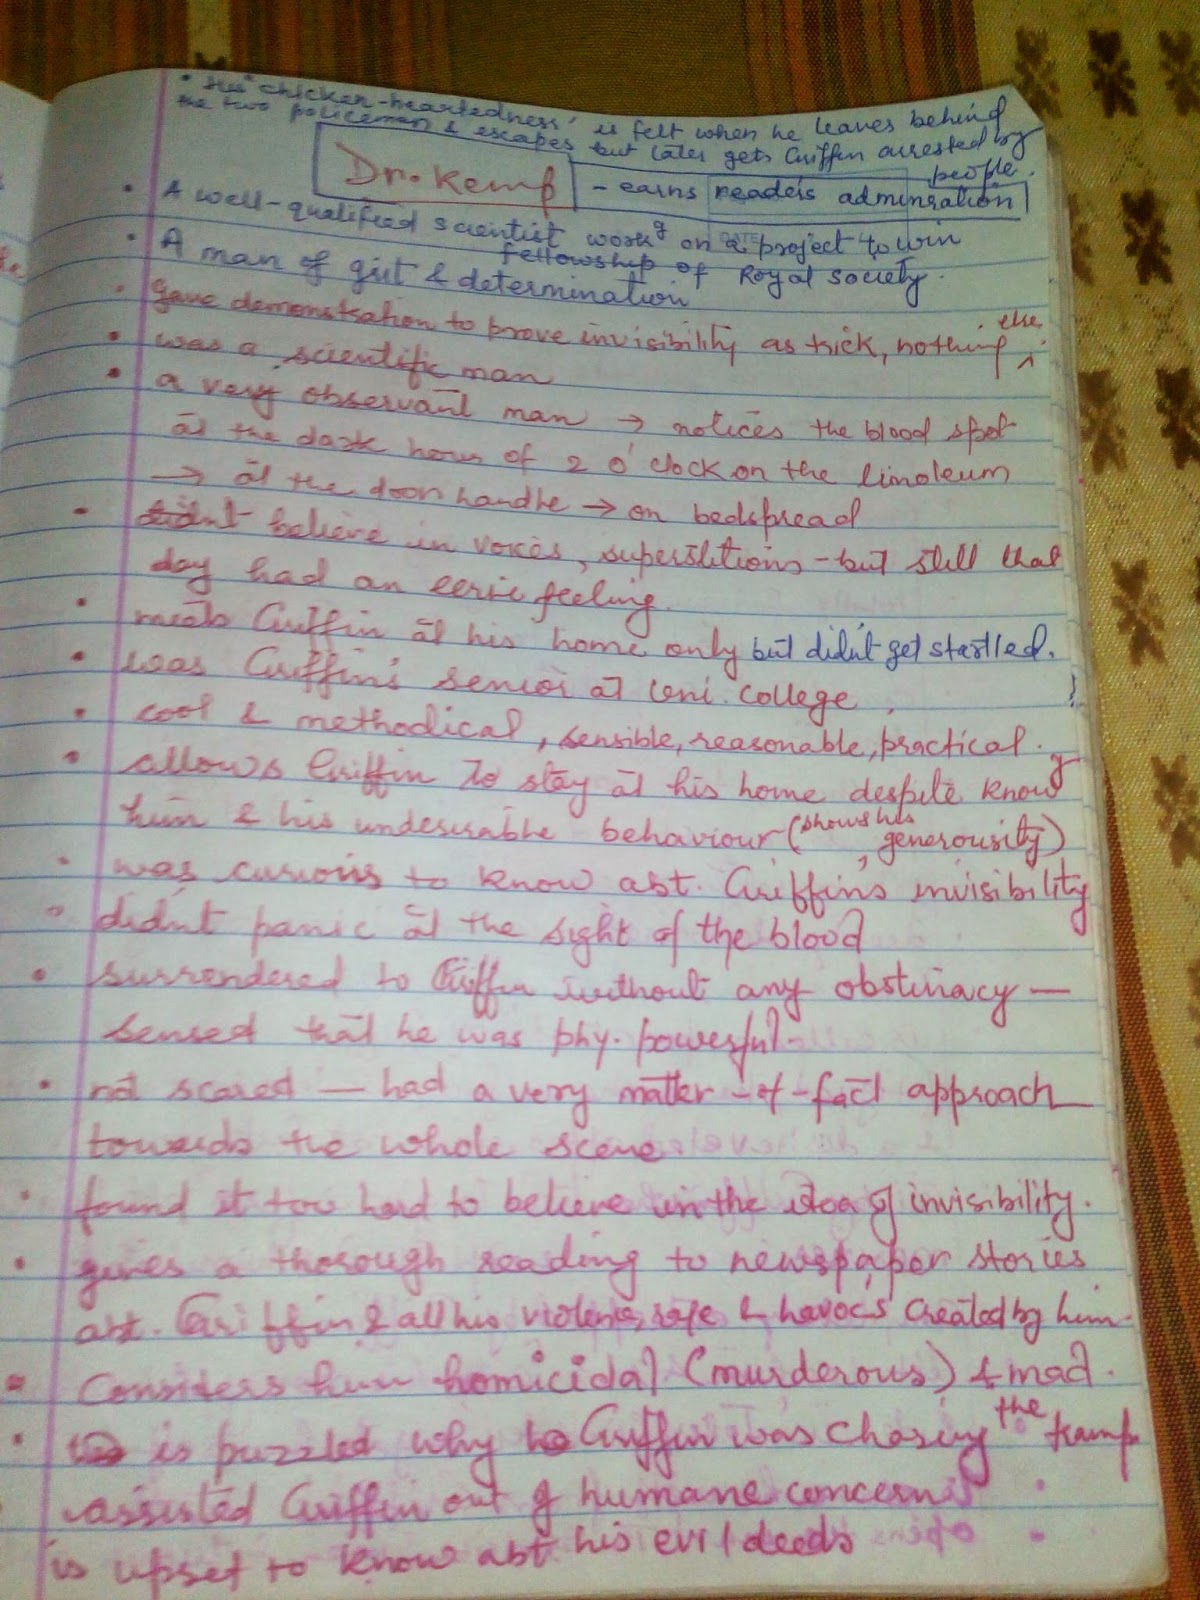 • His "chicken-heartedness" is felt when he leaves behind
the two policeman & escapes but later gets Griffin arrested by
people.
Dr. Kemp - earns readers adminration
• A well-qualified scientist workg on a project to win
fellowship of Royal Society.
• A man of grit & determination
• gave demonstration to prove invisibility as trick, nothing else.
• was a scientific man
• a very observant man → notices the blood spot
at the dark hour of 2 O'clock on the linoleum
→ at the door handle → on bedspread
• didnt believe in voices, superstitions - but still that
day had an eerie feeling.
• meets Griffin at his home only but didn't get startled.
• was Griffin's senior at Uni. college,
• cool & methodical, sensible, reasonable, practical.
• allows Griffin to stay at his home despite knowg
him & his undesirable behaviour (shows his generousity)
• was curious to know abt. Griffin's invisibility
• didn't panic at the sight of the blood
• surrendered to Griffin without any obstinacy —
sensed that he was phy. powerful.
• not scared — had a very matter-of-fact approach
towards the whole scene
• found it too hard to believe in the idea of invisibility.
• gives a thorough reading to newspaper stories
abt. Griffin & all his violence, & havocs created by him.
• Considers him homicidal (murderous) & mad.
• is puzzled why Griffin was chasing the tramp
assisted Griffin out of humane concerns
is upset to know abt his evil deeds